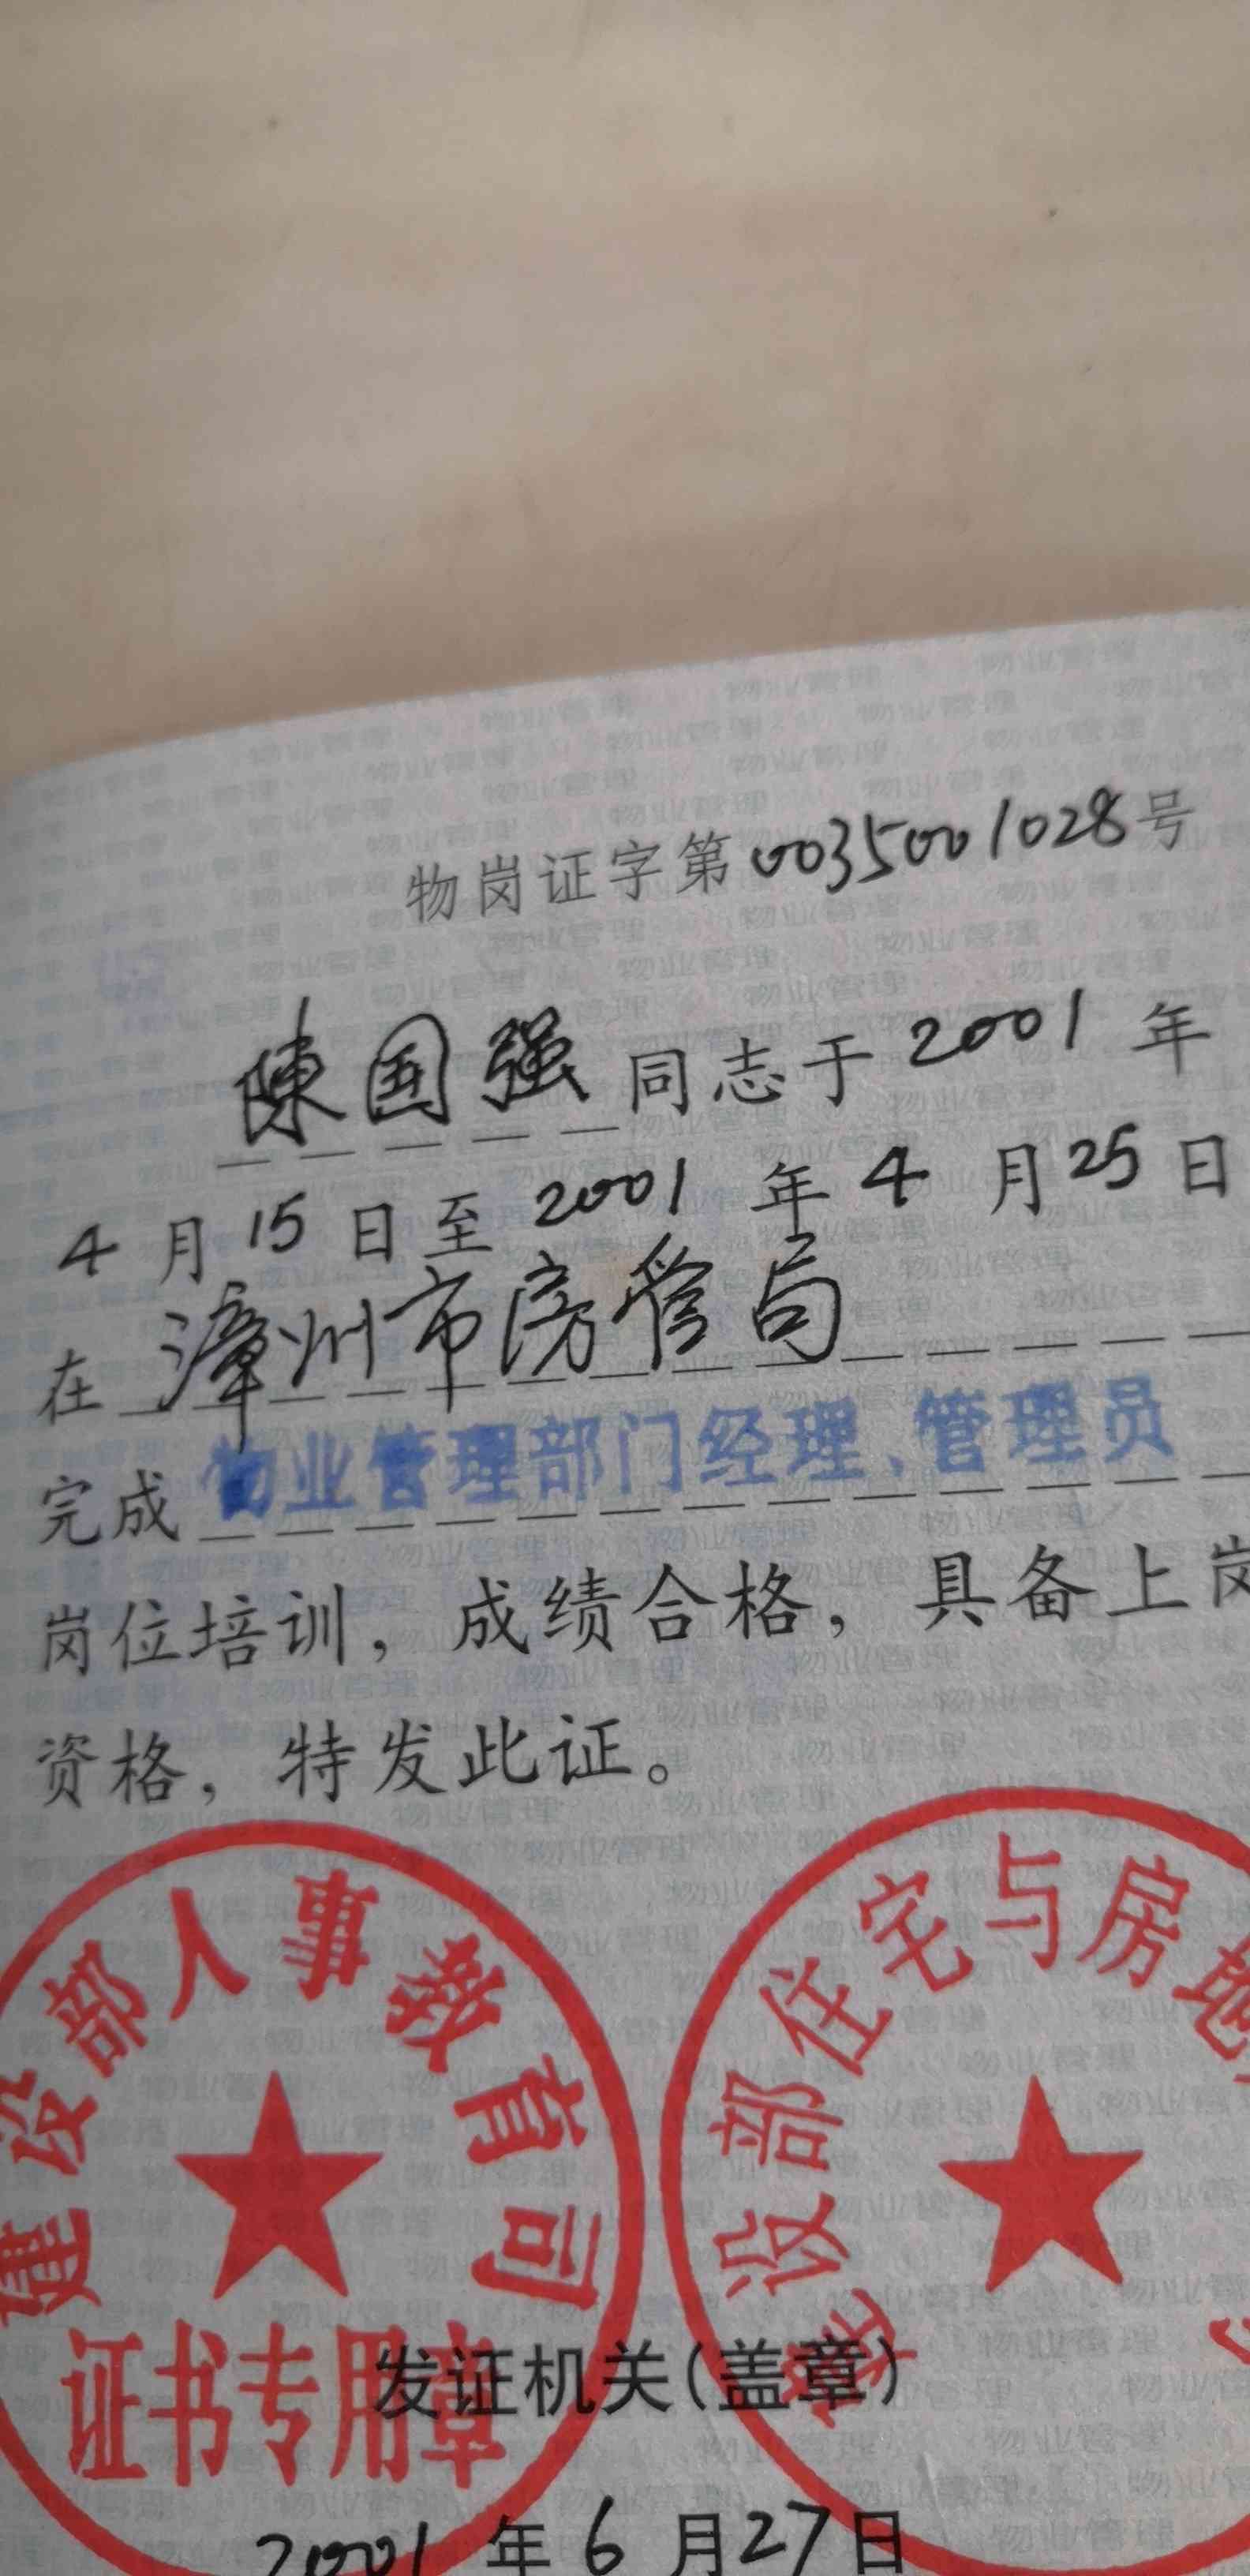 物岗证字第0035001028号
陳国强同志于2001年
4月15日至2001年4月25日
在漳州市房管局
完成物业管理部门经理、管理员
岗位培训，成绩合格，具备上岗
资格，特发此证。
建设部人事教育司
证书专用章
建设部住宅与房地
发证机关(盖章)
2001年6月27日